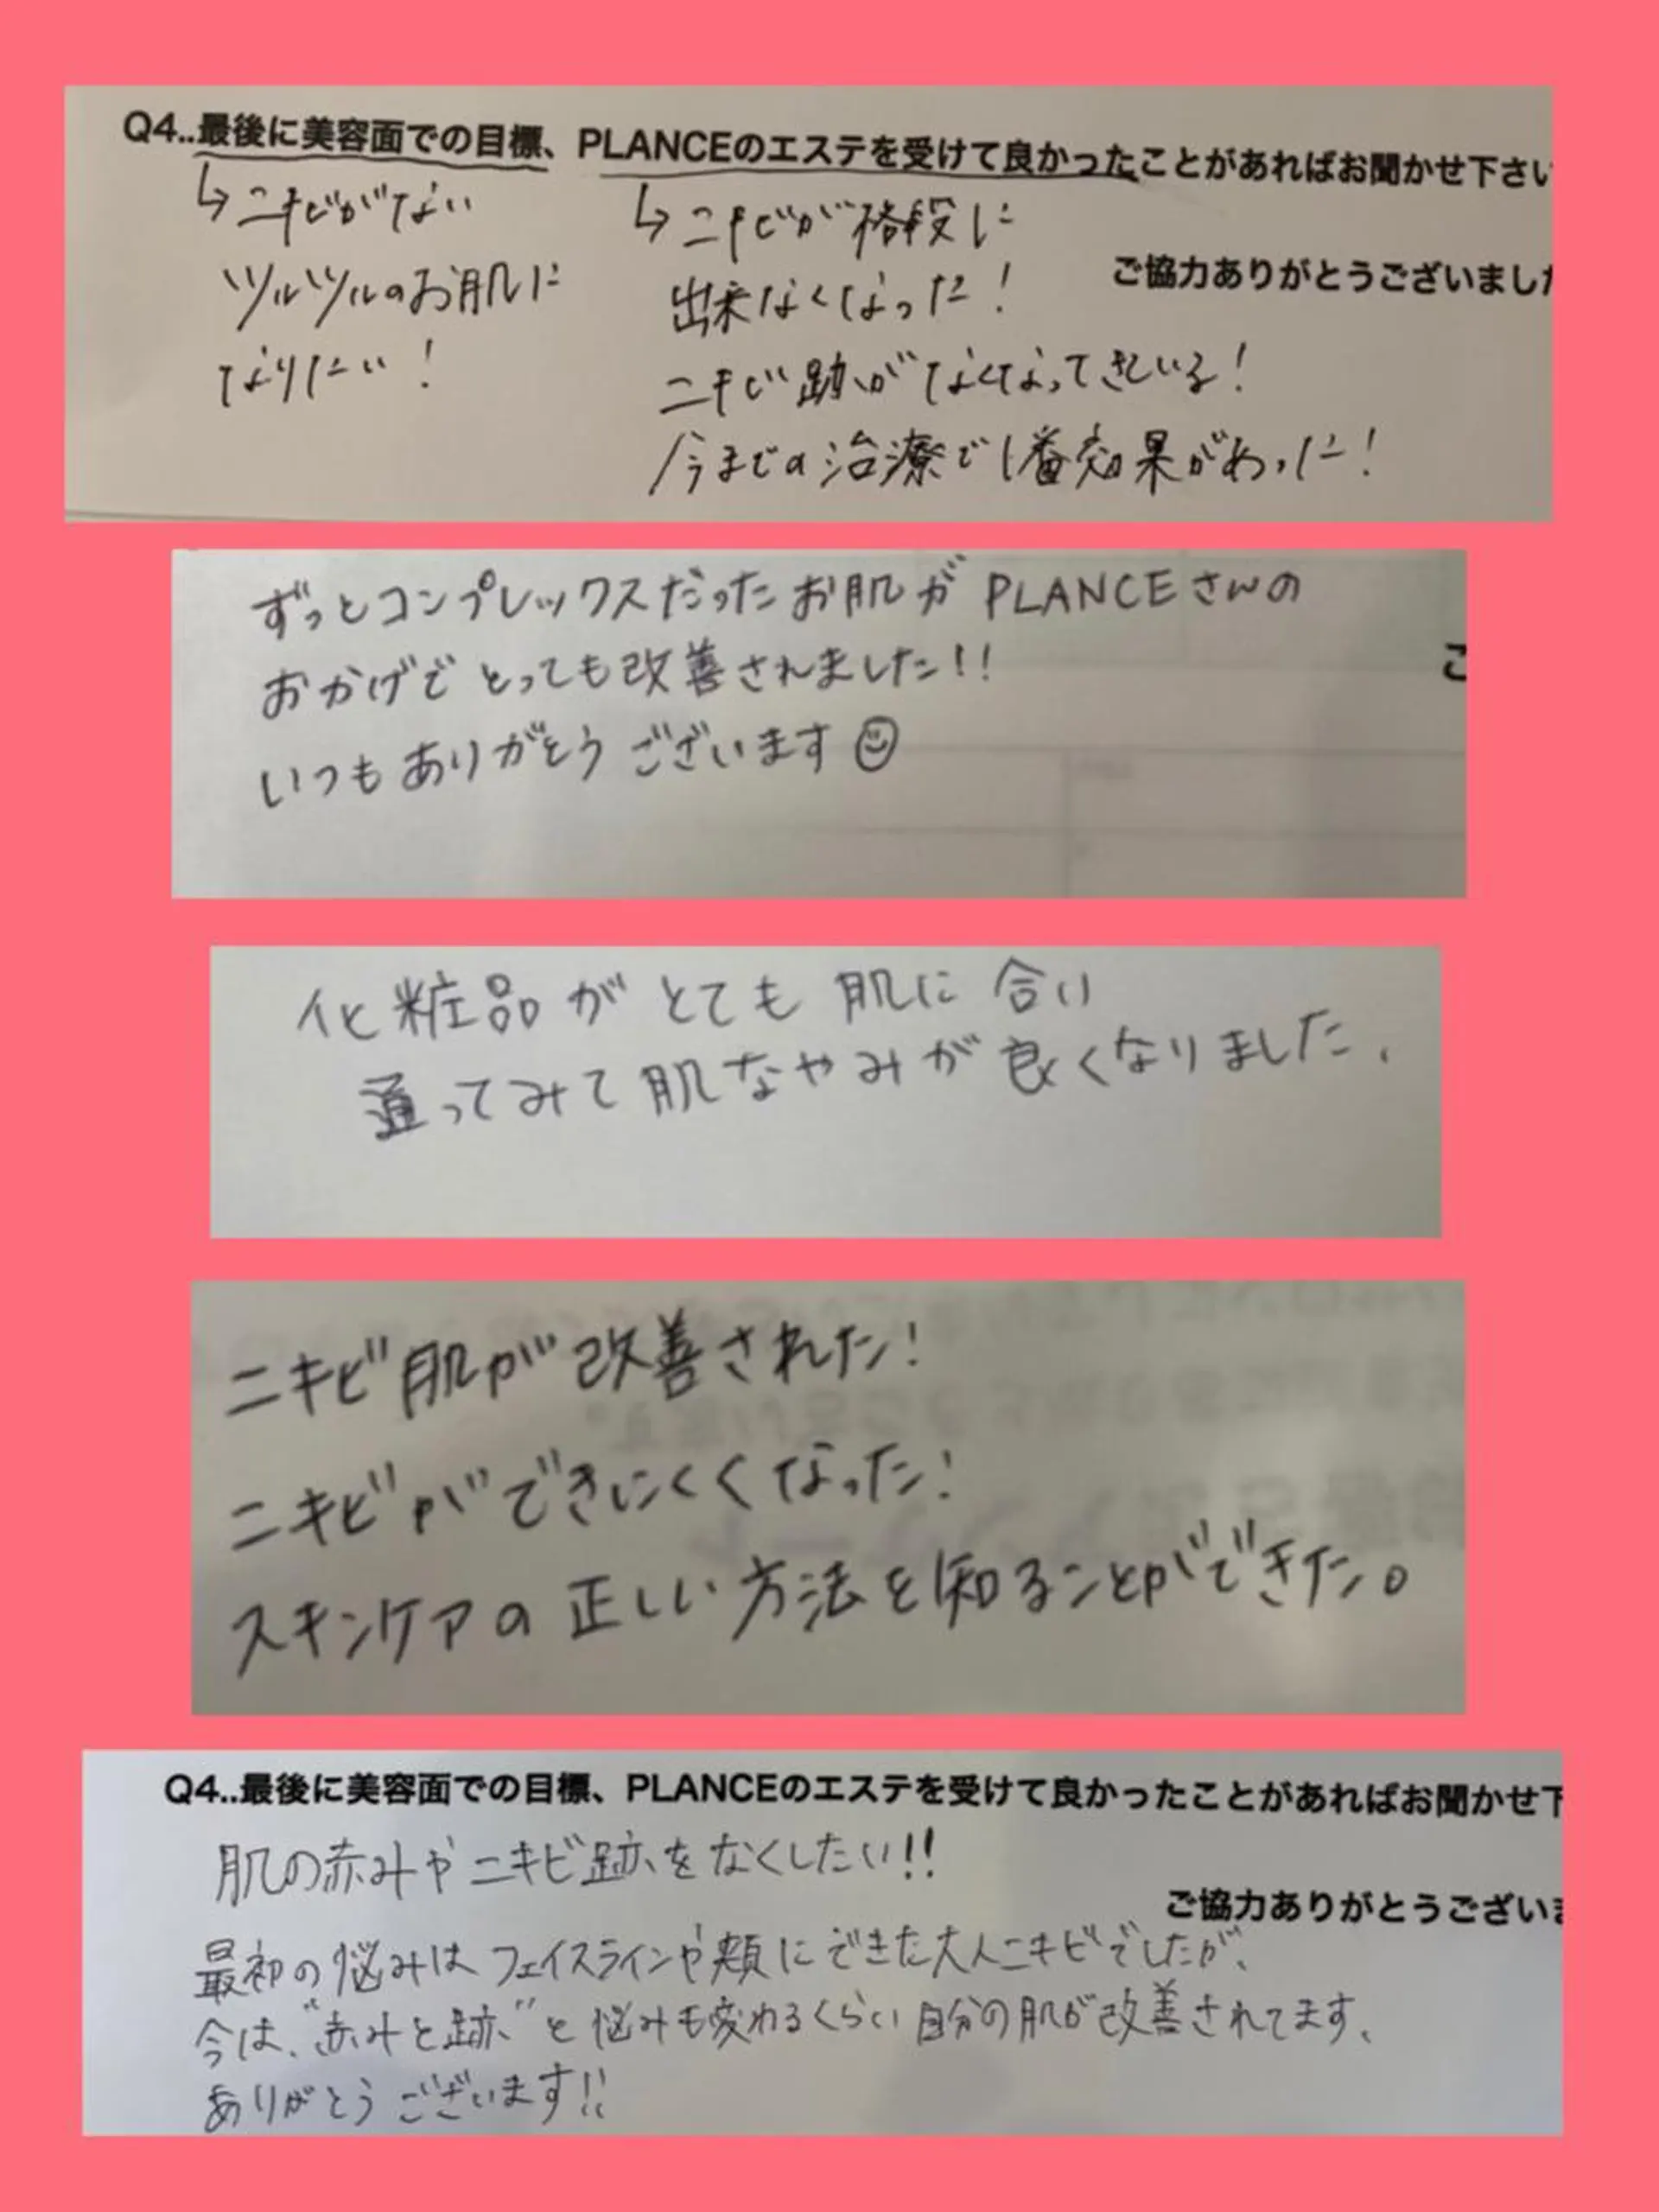 Q4..最後に美容面での目標、PLANCEのエステを受けて良かったことがあればお聞かせ下さい
↳ニキビがない
ツルツルのお肌に
なりたい!
↳ニキビが格段に
出来なくなった!
ニキビ跡がなくなってきている!
今までの治療で1番効果があった!
ご協力ありがとうございました
ずっとコンプレックスだったお肌がPLANCEさんの
おかげでとっても改善されました!!
いつもありがとうございます☺
こ
化粧品がとても肌に合い
通ってみて肌なやみが良くなりました、
ニキビ肌が改善された!
ニキビができにくくなった!
スキンケアの正しい方法を知ることができた。
Q4..最後に美容面での目標、PLANCEのエステを受けて良かったことがあればお聞かせ下
肌の赤みやニキビ跡をなくしたい!!
ご協力ありがとうございま
最初の悩みはフェイスラインや頬にできた大人ニキビでしたが、
今は、"赤みと跡"と悩みも変わるくらい自分の肌が改善されてます、
ありがとうございます!!